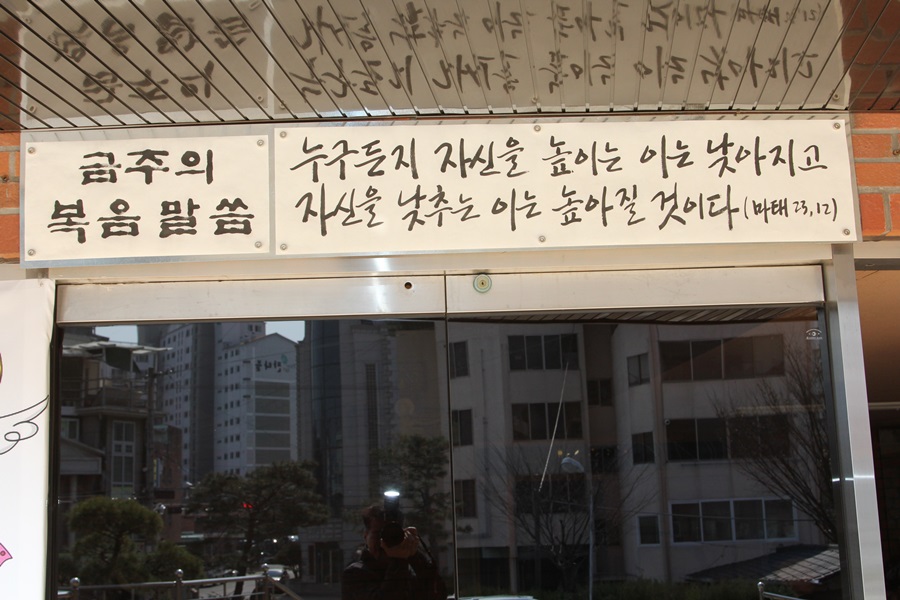 금주의
복음 말씀
누구든지 자신을 높이는 이는 낮아지고
자신을 낮추는 이는 높아질 것이다 (마태 23,12)